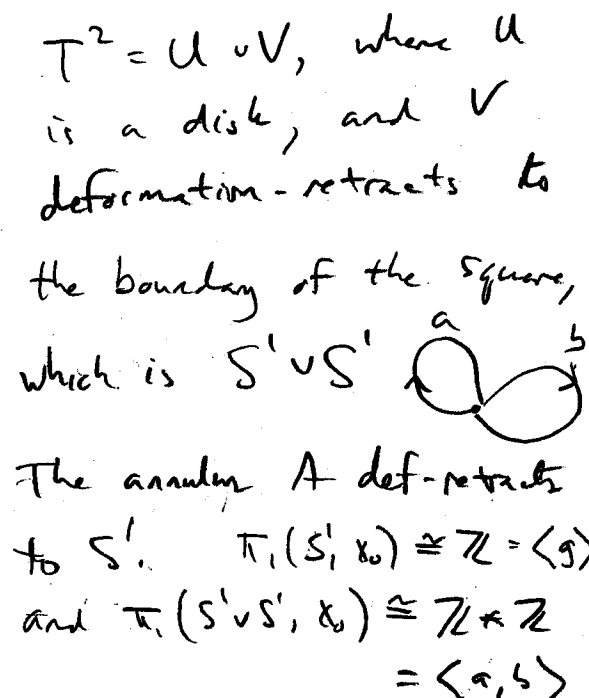 T² = U ∪ V, where U
is a disk, and V
deformation-retracts to
the boundary of the square,
which is S¹ ∨ S¹ a b
The annulus A def-retracts
to S¹. π₁(S¹, x₀) ≅ ℤ = ⟨g⟩
and π₁(S¹∨S¹, x₀) ≅ ℤ * ℤ
= ⟨a, b⟩